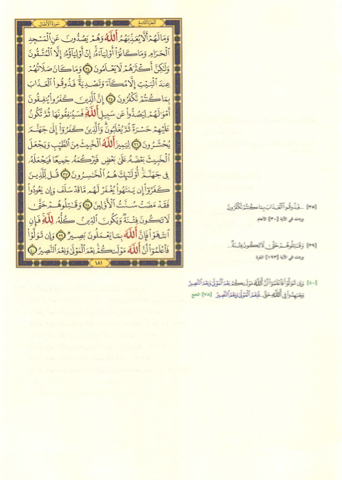 الجزء التاسع
سورة الأنفال
وَمَا لَهُمْ أَلَّا يُعَذِّبَهُمُ ٱللَّهُ وَهُمْ يَصُدُّونَ عَنِ ٱلْمَسْجِدِ
ٱلْحَرَامِ وَمَا كَانُوٓا۟ أَوْلِيَآءَهُۥٓ إِنْ أَوْلِيَآؤُهُۥٓ إِلَّا ٱلْمُتَّقُونَ
وَلَٰكِنَّ أَكْثَرَهُمْ لَا يَعْلَمُونَ ٣٤ وَمَا كَانَ صَلَاتُهُمْ
عِندَ ٱلْبَيْتِ إِلَّا مُكَآءً وَتَصْدِيَةً فَذُوقُوا۟ ٱلْعَذَابَ
بِمَا كُنتُمْ تَكْفُرُونَ ٣٥ إِنَّ ٱلَّذِينَ كَفَرُوا۟ يُنفِقُونَ
أَمْوَٰلَهُمْ لِيَصُدُّوا۟ عَن سَبِيلِ ٱللَّهِ فَسَيُنفِقُونَهَا ثُمَّ تَكُونُ
عَلَيْهِمْ حَسْرَةً ثُمَّ يُغْلَبُونَ وَٱلَّذِينَ كَفَرُوٓا۟ إِلَىٰ جَهَنَّمَ
يُحْشَرُونَ ٣٦ لِيَمِيزَ ٱللَّهُ ٱلْخَبِيثَ مِنَ ٱلطَّيِّبِ وَيَجْعَلَ
ٱلْخَبِيثَ بَعْضَهُۥ عَلَىٰ بَعْضٍ فَيَرْكُمَهُۥ جَمِيعًا فَيَجْعَلَهُۥ
فِى جَهَنَّمَ أُو۟لَٰٓئِكَ هُمُ ٱلْخَٰسِرُونَ ٣٧ قُل لِّلَّذِينَ
كَفَرُوٓا۟ إِن يَنتَهُوا۟ يُغْفَرْ لَهُم مَّا قَدْ سَلَفَ وَإِن يَعُودُوا۟
فَقَدْ مَضَتْ سُنَّتُ ٱلْأَوَّلِينَ ٣٨ وَقَٰتِلُوهُمْ حَتَّىٰ
لَا تَكُونَ فِتْنَةٌ وَيَكُونَ ٱلدِّينُ كُلُّهُۥ لِلَّهِ فَإِنِ
ٱنتَهَوْا۟ فَإِنَّ ٱللَّهَ بِمَا يَعْمَلُونَ بَصِيرٌ ٣٩ وَإِن تَوَلَّوْا۟
فَٱعْلَمُوٓا۟ أَنَّ ٱللَّهَ مَوْلَىٰكُمْ نِعْمَ ٱلْمَوْلَىٰ وَنِعْمَ ٱلنَّصِيرُ ٤٠
١٨١
[٣٥] ...فَذُوقُوا۟ ٱلْعَذَابَ بِمَا كُنتُمْ تَكْفُرُونَ
[٣٠] الأنعام
[٣٩] وَقَٰتِلُوهُمْ حَتَّىٰ لَا تَكُونَ فِتْنَةٌ...
[١٩٣] البقرة
[٤٠] وَإِن تَوَلَّوْا۟ فَٱعْلَمُوٓا۟ أَنَّ ٱللَّهَ مَوْلَىٰكُمْ نِعْمَ ٱلْمَوْلَىٰ وَنِعْمَ ٱلنَّصِيرُ
وَجَٰهِدُوا۟ فِى ٱللَّهِ حَقَّ... فَنِعْمَ ٱلْمَوْلَىٰ وَنِعْمَ ٱلنَّصِيرُ [٧٨] الحج